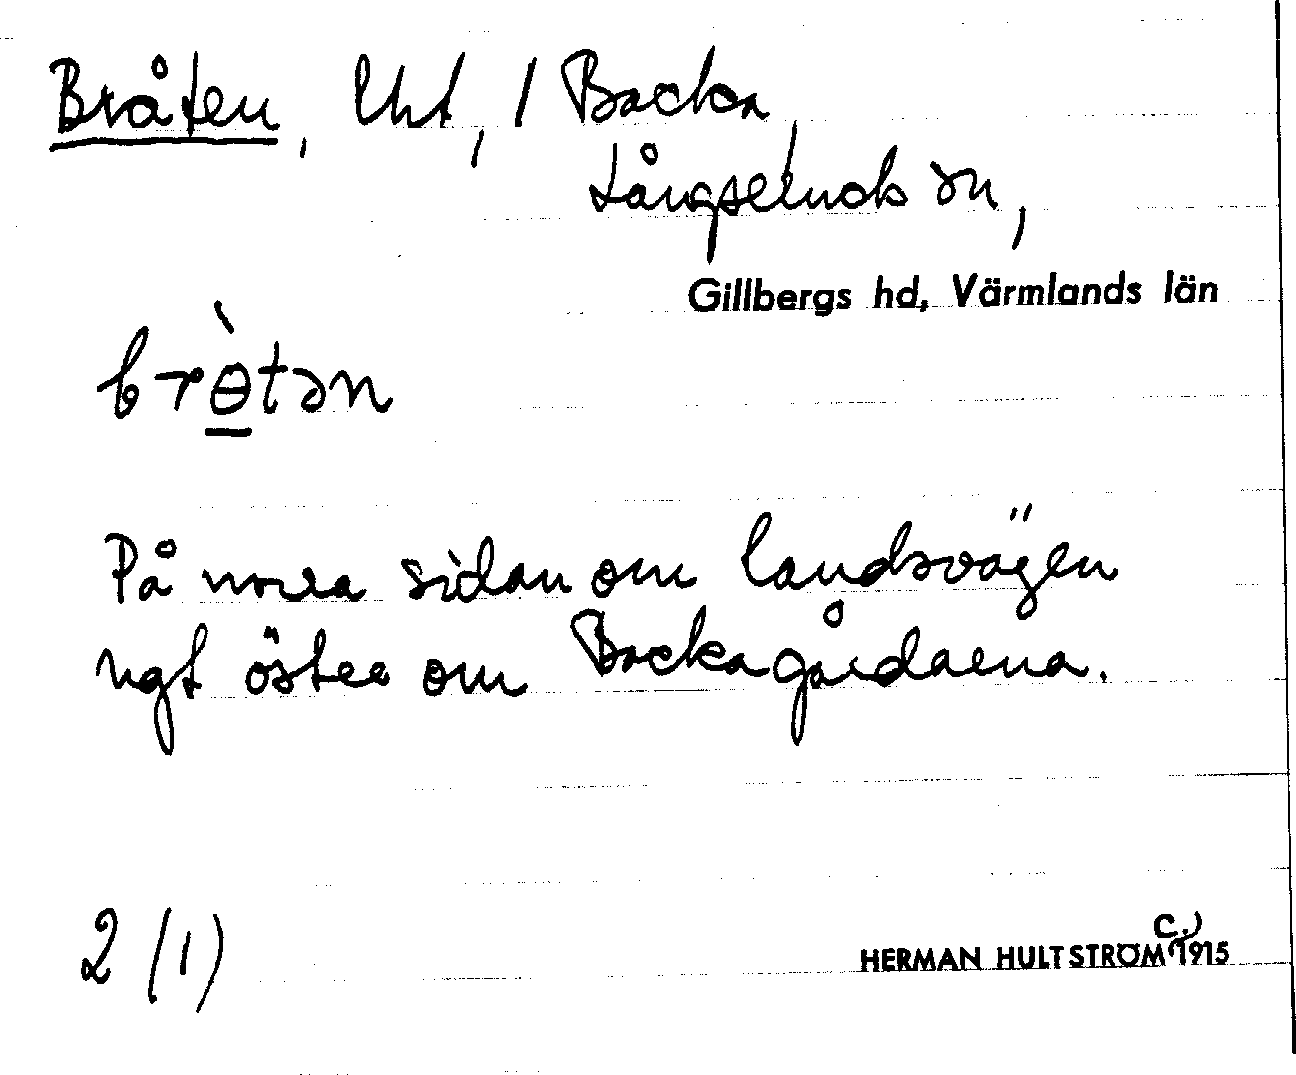 Bråten, Lht, 1 Backa,
Långseruds sn,
Gillbergs hd, Värmlands län
brɵ̀tən
På norra sidan om landsvägen
ngt öster om Backagårdarna.
2 (1)
HERMAN HULTSTRÖM C.) 1915